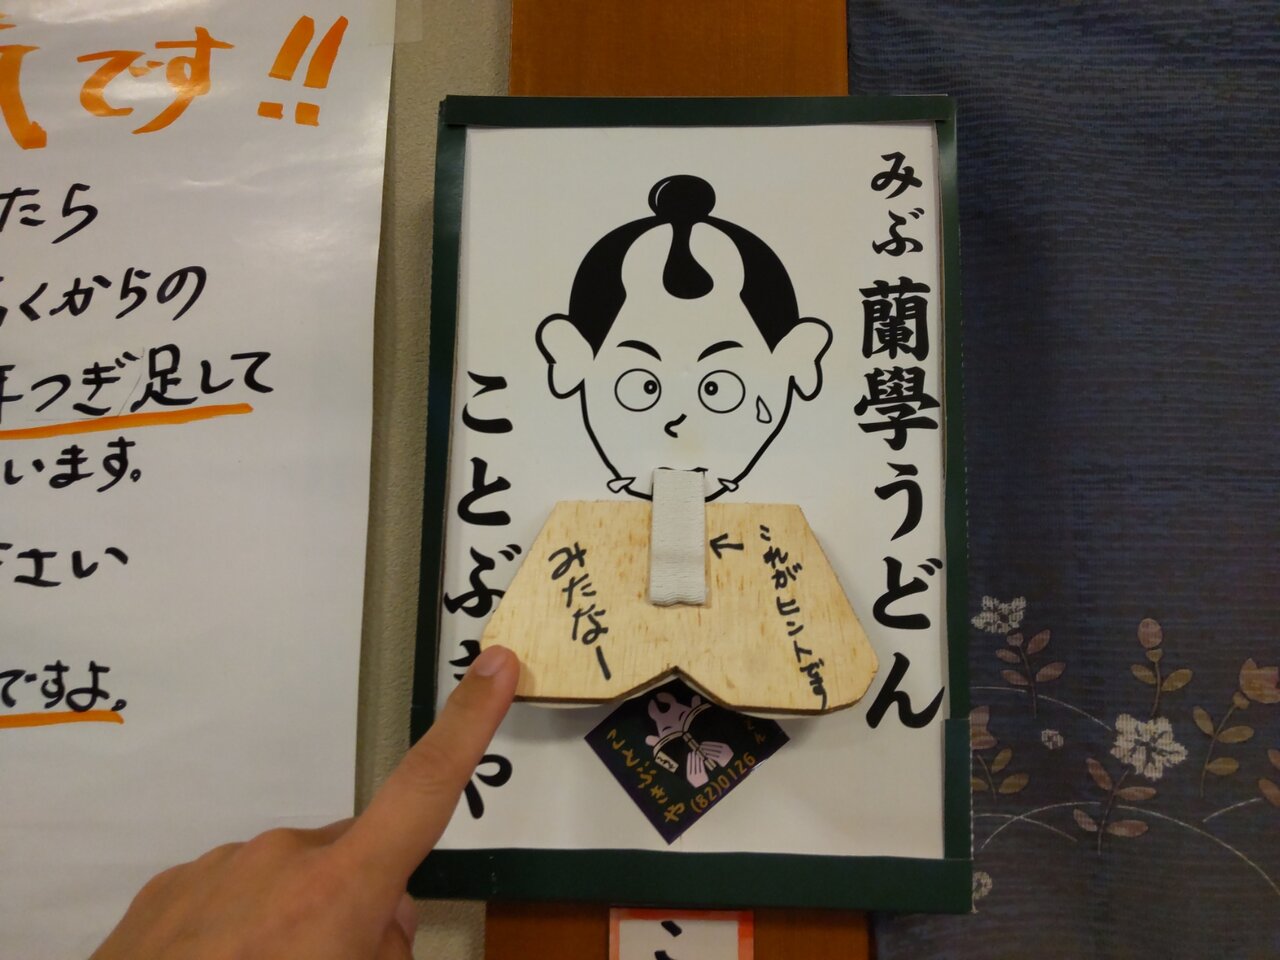 です!!
たら
くからの
つぎ足して
います。
さい
ですよ。
みぶ蘭學うどん
ことぶきや
これがヒントだす
みたなー
ことぶきや
(82)0126